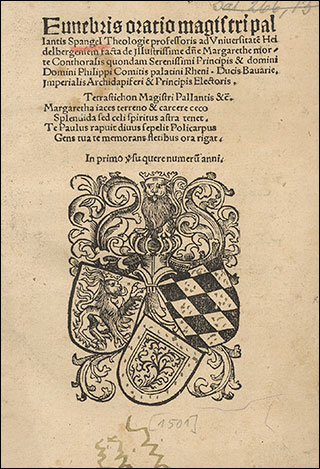 Funebris oratio magistri pal
lantis Spangel Theologie professoris ad Vniuersitatē Hei
delbergensem facta de Illustrissime dñe Margarethe mor
te Conthoralis quondam Serenissimi Principis & domini
Domini Philippi Comitis palatini Rheni. Ducis Bauarie,
Imperialis Archidapiferi & Principis Electoris.
Tetrastichon Magistri Pallantis &c.
Margaretha iaces terreno & carcere ceco
Splendida sed celi spiritus astra tenet.
Te Paulus rapuit diuus sepelit Policarpus
Gens tua te memorans fletibus ora rigat.
In primo ỹsu quere numerū anni.
[1501]